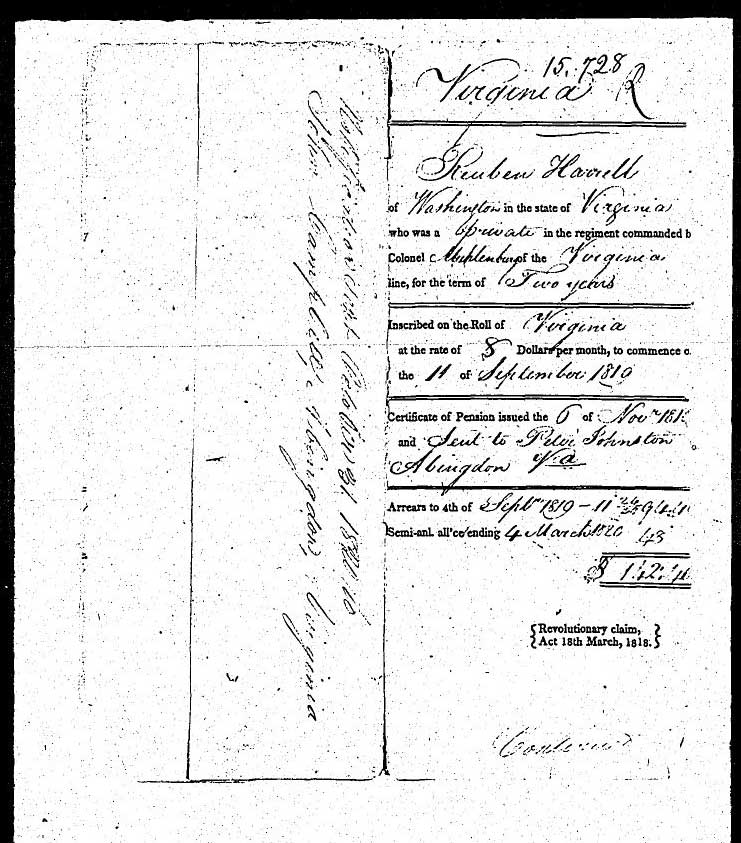 15.728
Virginia R
Reuben Harrell
of Washington in the state of Virginia
who was a private in the regiment commanded b
Colonel Muhlenburg of the Virginia
line, for the term of Two years
Inscribed on the Roll of Virginia
at the rate of 8 Dollars per month, to commence o
the 11 of September 1819
Certificate of Pension issued the 6 of Novr 181
and Sent to Peter Johnston
Abingdon Va
Arrears to 4th of Septr 1819
Semi-anl. all'ce ending 4 March 1820 48
Revolutionary claim,
Act 18th March, 1818.
Notification sent 31 1820 to
John Campbell, Abingdon, Virginia